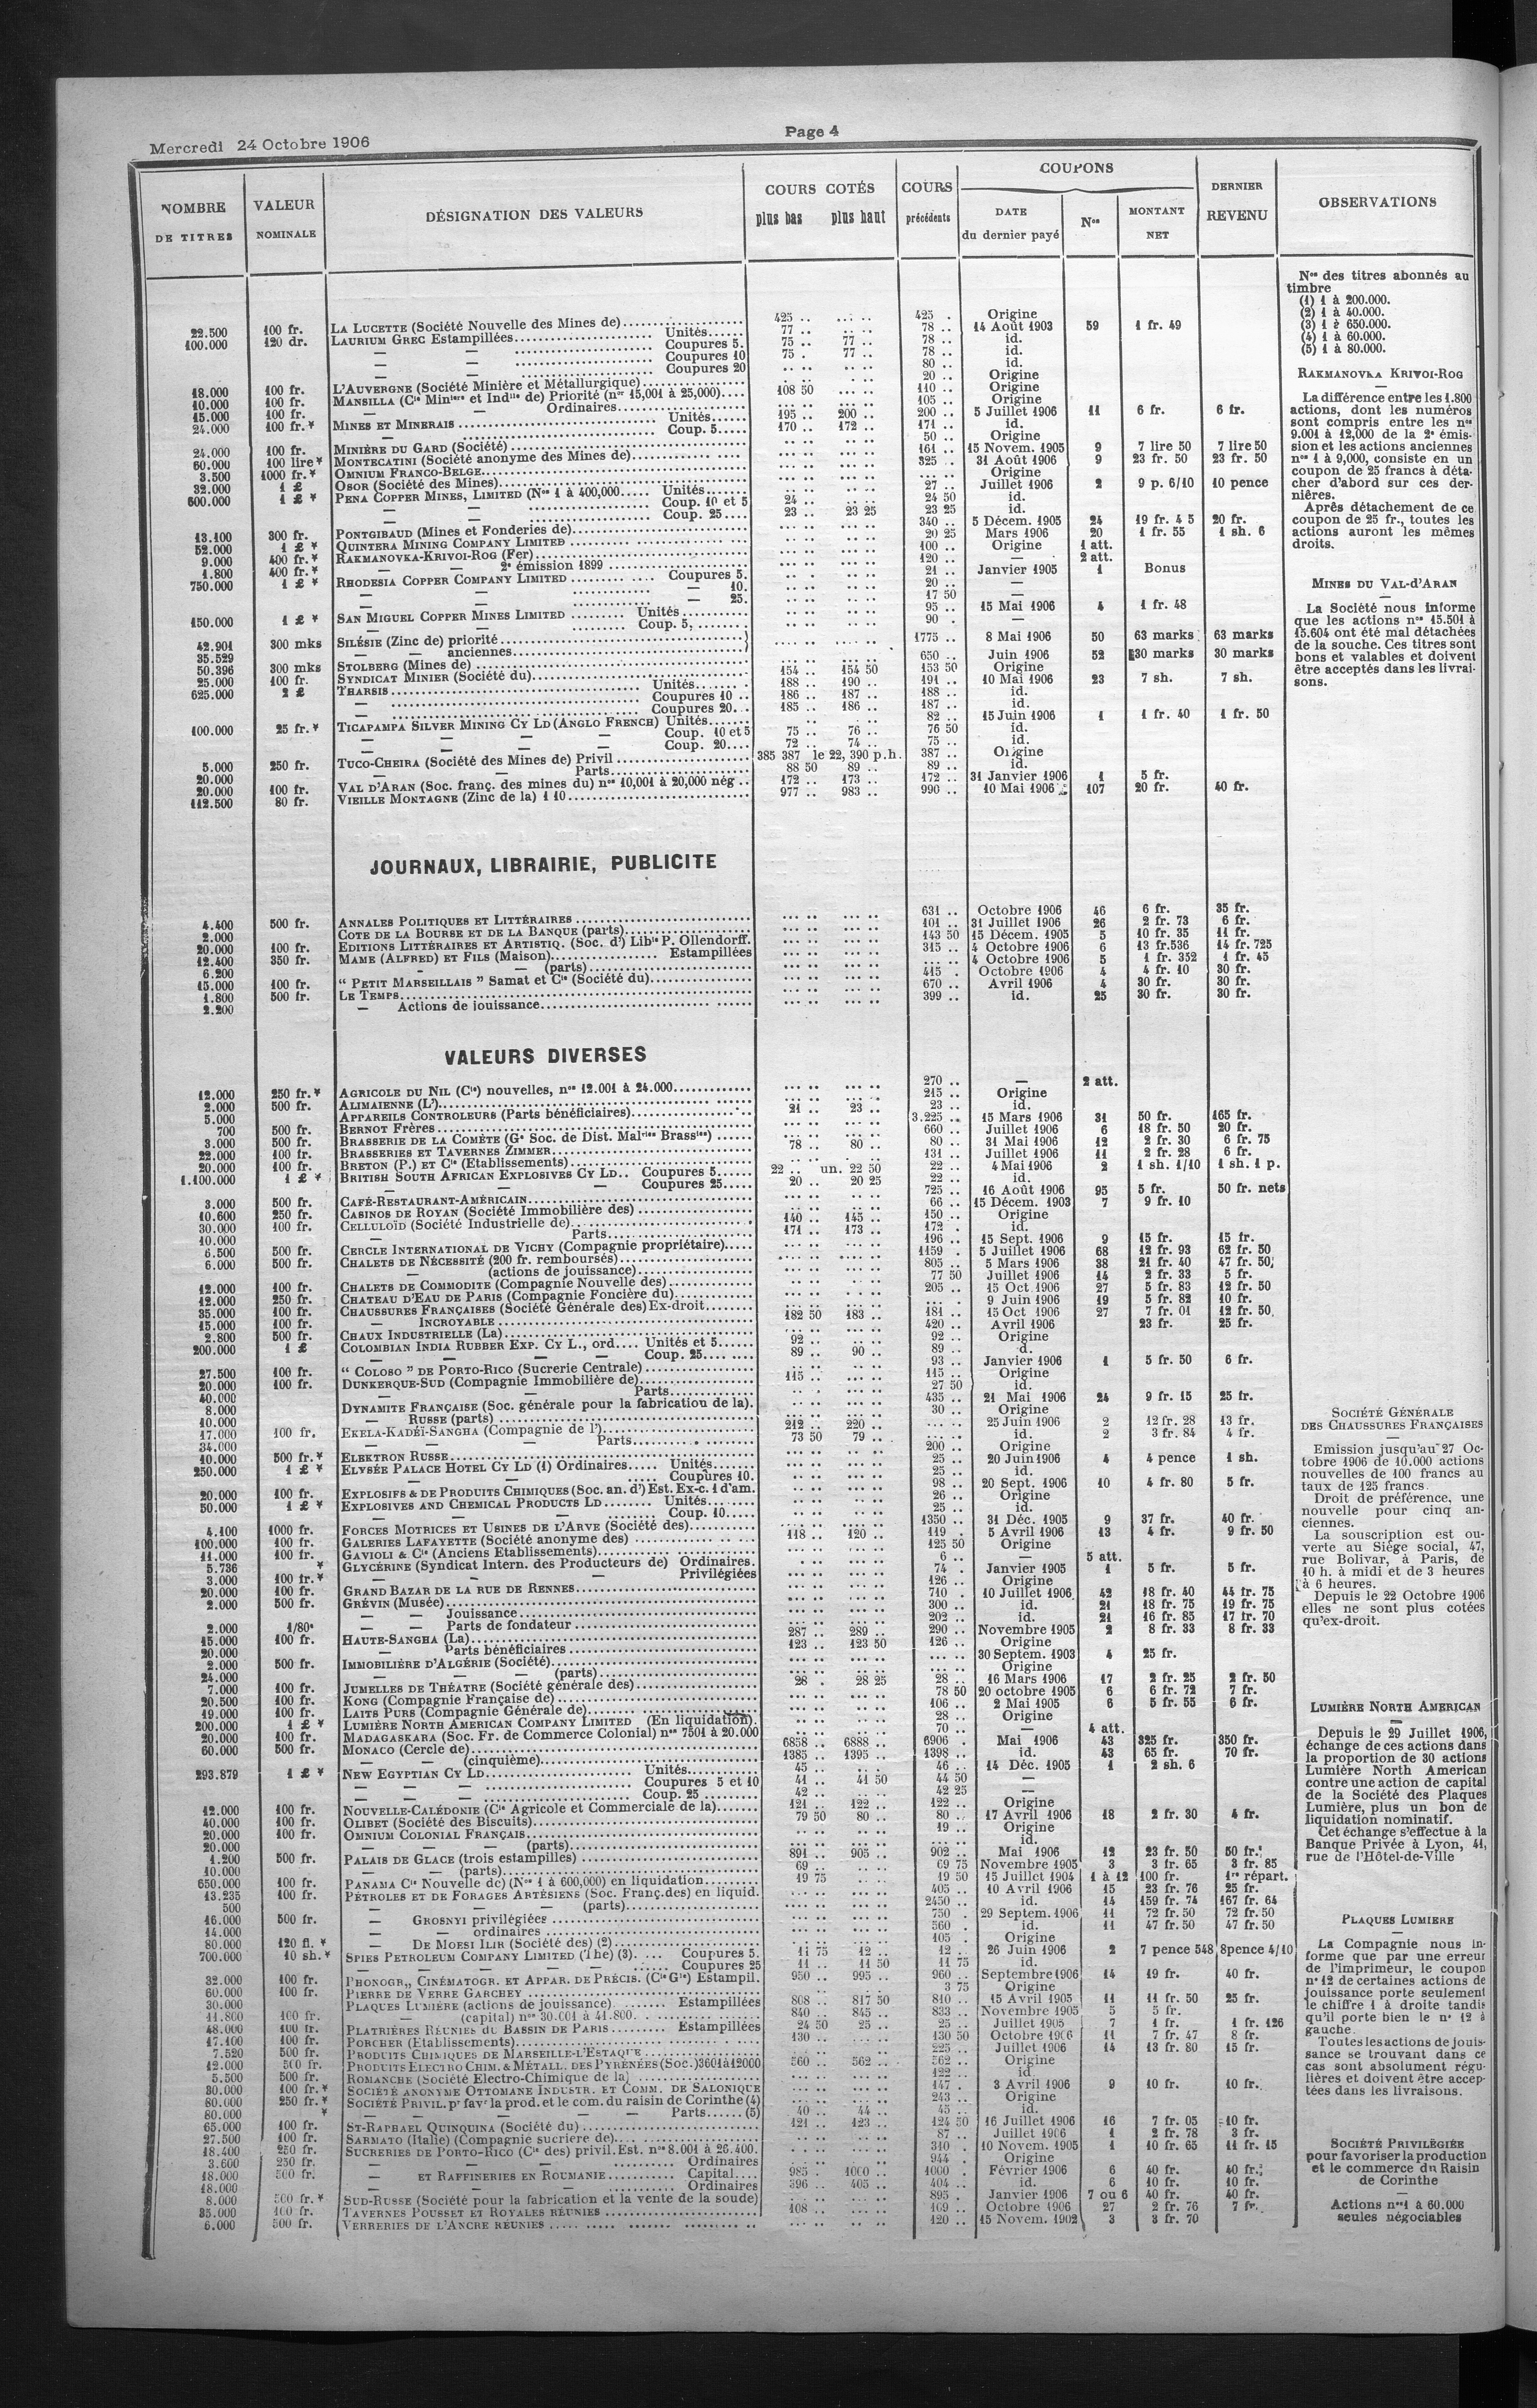 Mercredi 24 Octobre 1906
Page 4
NOMBRE DE TITRES | VALEUR NOMINALE | DÉSIGNATION DES VALEURS | COURS COTÉS plus bas plus haut | COURS précédents | COUPONS DATE du dernier payé Nos MONTANT NET | DERNIER REVENU | OBSERVATIONS
22.500 100 fr. LA LUCETTE (Société Nouvelle des Mines de) 425 .. 425 . Origine
100.000 120 dr. LAURIUM GREC Estampillées Unités 77 .. 78 .. 14 Août 1903 59 1 fr. 49
— — Coupures 5. 75 .. 77 .. 78 .. id.
— — Coupures 10 75 . 77 .. 78 .. id.
— — Coupures 20 80 .. id.
18.000 100 fr. L'AUVERGNE (Société Minière et Métallurgique) 20 .. Origine
10.000 100 fr. MANSILLA (Cie Minière et Indlle de) Priorité (nos 15,001 à 25,000) 108 50 110 .. Origine
15.000 100 fr. — — Ordinaires 105 .. Origine
24.000 100 fr.* MINES ET MINERAIS Unités 195 .. 200 .. 200 .. 5 Juillet 1906 11 6 fr. 6 fr.
— Coup. 5 170 .. 172 .. 171 .. id.
24.000 100 fr. MINIÈRE DU GARD (Société) 50 .. Origine
60.000 100 lire* MONTECATINI (Société anonyme des Mines de) 161 .. 15 Novem. 1905 9 7 lire 50 7 lire 50
3.500 1000 fr.* OMNIUM FRANCO-BELGE 325 .. 31 Août 1906 9 23 fr. 50 23 fr. 50
32.000 1 £ OSOR (Société des Mines) Origine
600.000 1 £ * PENA COPPER MINES, LIMITED (Nos 1 à 400,000 Unités 27 .. Juillet 1906 2 9 p. 6/10 10 pence
— — Coup. 10 et 5 24 .. 24 50 id.
— — Coup. 25 23 .. 23 25 23 25 id.
13.100 300 fr. PONTGIBAUD (Mines et Fonderies de) 340 .. 5 Décem. 1905 24 19 fr. 4 5 20 fr.
52.000 1 £ * QUINTERA MINING COMPANY LIMITED 20 25 Mars 1906 20 1 fr. 55 1 sh. 6
9.000 400 fr.* RAKMANOVKA-KRIVOI-ROG (Fer) 100 .. Origine 1 att.
1.800 400 fr.* — — 2e émission 1899 120 .. — 2 att.
750.000 1 £ * RHODESIA COPPER COMPANY LIMITED Coupures 5. 21 .. Janvier 1905 1 Bonus
— — — 10. 20 .. —
— — — 25. 17 50 —
150.000 1 £ * SAN MIGUEL COPPER MINES LIMITED Unités 95 .. 15 Mai 1906 4 1 fr. 48
— — Coup. 5, 90 . —
42.901 300 mks SILÉSIE (Zinc de) priorité 1775 .. 8 Mai 1906 50 63 marks 63 marks
35.529 — — anciennes
50.396 300 mks STOLBERG (Mines de) 650 .. Juin 1906 52 30 marks 30 marks
25.000 100 fr. SYNDICAT MINIER (Société du) 154 .. 154 50 153 50 Origine
625.000 2 £ THARSIS Unités 188 .. 190 .. 191 .. 10 Mai 1906 23 7 sh. 7 sh.
— Coupures 10 186 .. 187 .. 188 .. id.
— Coupures 20 185 .. 186 .. 187 .. id.
100.000 25 fr.* TICAPAMPA SILVER MINING CY LD (ANGLO FRENCH) Unités 82 .. 15 Juin 1906 1 1 fr. 40 1 fr. 50
— — — — Coup. 10 et 5 75 .. 76 .. 76 50 id.
— — — — Coup. 20 72 .. 74 .. 75 .. id.
5.000 250 fr. TUCO-CHEIRA (Société des Mines de) Privil 385 387 le 22, 390 p.h. 387 .. Origine
20.000 — — Parts 88 50 89 .. 89 .. id.
20.000 100 fr. VAL D'ARAN (Soc. franç. des mines du) nos 10,001 à 20,000 nég 172 .. 173 .. 172 .. 31 Janvier 1906 1 5 fr.
112.500 80 fr. VIEILLE MONTAGNE (Zinc de la) 1 10 977 .. 983 .. 990 .. 10 Mai 1906 107 20 fr. 40 fr.
JOURNAUX, LIBRAIRIE, PUBLICITE
4.400 500 fr. ANNALES POLITIQUES ET LITTÉRAIRES 631 .. Octobre 1906 46 6 fr. 35 fr.
2.000 COTE DE LA BOURSE ET DE LA BANQUE (parts) 101 .. 31 Juillet 1906 26 2 fr. 73 6 fr.
20.000 100 fr. EDITIONS LITTÉRAIRES ET ARTISTIQ. (Soc. d') Libie P. Ollendorff. 143 50 15 Décem. 1905 5 10 fr. 35 11 fr.
12.400 350 fr. MAME (ALFRED) ET FILS (Maison) Estampillées 315 .. 4 Octobre 1906 6 13 fr.536 14 fr. 725
6.200 — (parts) 4 Octobre 1906 5 1 fr. 352 1 fr. 45
15.000 100 fr. “ PETIT MARSEILLAIS ” Samat et Cie (Société du) 415 . Octobre 1906 4 4 fr. 10 30 fr.
1.800 500 fr. LE TEMPS 670 .. Avril 1906 4 30 fr. 30 fr.
2.200 — Actions de jouissance 399 .. id. 25 30 fr. 30 fr.
VALEURS DIVERSES
12.000 250 fr.* AGRICOLE DU NIL (Cie) nouvelles, nos 12.001 à 24.000 270 .. — 2 att.
2.000 500 fr. ALIMAIENNE (L') 215 .. Origine
5.000 APPAREILS CONTROLEURS (Parts bénéficiaires) 21 .. 23 .. 23 .. id.
700 500 fr. BERNOT Frères 3.225 .. 15 Mars 1906 31 50 fr. 165 fr.
3.000 500 fr. BRASSERIE DE LA COMÈTE (Ge Soc. de Dist. Malries Brassies) 660 .. Juillet 1906 6 18 fr. 50 20 fr.
22.000 100 fr. BRASSERIES ET TAVERNES ZIMMER 78 .. 80 .. 80 .. 31 Mai 1906 12 2 fr. 30 6 fr. 75
20.000 100 fr. BRETON (P.) ET Cie (Etablissements) 131 .. Juillet 1906 11 2 fr. 28 6 fr.
1.100.000 1 £ * BRITISH SOUTH AFRICAN EXPLOSIVES CY LD Coupures 5 22 .. un. 22 50 22 .. 4 Mai 1906 2 1 sh. 1/10 1 sh. 1 p.
— — — Coupures 25 20 .. 20 25 22 .. id.
3.000 500 fr. CAFÉ-RESTAURANT-AMÉRICAIN 725 .. 16 Août 1906 95 5 fr. 50 fr. nets
10.600 250 fr. CASINOS DE ROYAN (Société Immobilière des) 66 .. 15 Décem. 1903 7 9 fr. 10
30.000 100 fr. CELLULOÏD (Société Industrielle de) 140 .. 145 .. 150 .. Origine
10.000 — Parts 171 .. 173 .. 172 . id.
6.500 500 fr. CERCLE INTERNATIONAL DE VICHY (Compagnie propriétaire) 196 .. 15 Sept. 1906 9 15 fr. 15 fr.
6.000 500 fr. CHALETS DE NÉCESSITÉ (200 fr. remboursés) 1159 . 5 Juillet 1906 68 12 fr. 93 62 fr. 50
— (actions de jouissance) 805 .. 5 Mars 1906 38 21 fr. 40 47 fr. 50
12.000 100 fr. CHALETS DE COMMODITE (Compagnie Nouvelle des) 77 50 Juillet 1906 14 2 fr. 33 5 fr.
12.000 250 fr. CHATEAU D'EAU DE PARIS (Compagnie Foncière du) 205 .. 15 Oct. 1906 27 5 fr. 83 12 fr. 50
35.000 100 fr. CHAUSSURES FRANÇAISES (Société Générale des) Ex-droit 182 50 183 .. 181 .. 9 Juin 1906 19 5 fr. 82 10 fr.
15.000 100 fr. — INCROYABLE 15 Oct 1906 27 7 fr. 01 12 fr. 50
2.800 500 fr. CHAUX INDUSTRIELLE (La) 420 .. Avril 1906 23 fr. 25 fr.
200.000 1 £ COLOMBIAN INDIA RUBBER EXP. CY L., ord Unités et 5 92 .. 92 .. Origine
— — — Coup. 25 89 .. 90 .. 89 .. d.
27.500 100 fr. “ COLOSO ” DE PORTO-RICO (Sucrerie Centrale) 93 .. Janvier 1906 1 5 fr. 50 6 fr.
20.000 100 fr. DUNKERQUE-SUD (Compagnie Immobilière de) 115 .. 115 .. Origine
40.000 — — Parts 27 50 id.
8.000 DYNAMITE FRANÇAISE (Soc. générale pour la fabrication de la). 435 .. 21 Mai 1906 24 9 fr. 15 25 fr.
10.000 — RUSSE (parts) 30 .. Origine
17.000 100 fr. EKELA-KADÉÏ-SANGHA (Compagnie de l') 212 .. 220 .. 25 Juin 1906 2 12 fr. 28 13 fr.
34.000 — — — Parts 73 50 79 .. id. 2 3 fr. 84 4 fr.
10.000 500 fr.* ELEKTRON RUSSE 200 .. Origine
250.000 1 £ * ELYSÉE PALACE HOTEL CY LD (1) Ordinaires Unités 25 .. 20 Juin 1906 4 4 pence 1 sh.
— — — Coupures 10. 25 .. id.
20.000 100 fr. EXPLOSIFS & DE PRODUITS CHIMIQUES (Soc. an. d') Est. Ex-c. 1 d'am. 98 .. 20 Sept. 1906 10 4 fr. 80 5 fr.
50.000 1 £ * EXPLOSIVES AND CHEMICAL PRODUCTS LD Unités 26 .. Origine
— — — Coup. 10 25 .. id.
4.100 1000 fr. FORCES MOTRICES ET USINES DE L'ARVE (Société des) 1350 .. 31 Déc. 1905 9 37 fr. 40 fr.
100.000 100 fr. GALERIES LAFAYETTE (Société anonyme des) 118 .. 120 .. 119 . 5 Avril 1906 13 4 fr. 9 fr. 50
11.000 100 fr. GAVIOLI & Cie (Anciens Etablissements) 125 50 Origine
5.736 * GLYCÉRINE (Syndicat Intern. des Producteurs de) Ordinaires. 6 .. — 5 att.
3.000 100 fr.* — — — Privilégiées 74 . Janvier 1905 1 5 fr. 5 fr.
20.000 100 fr. GRAND BAZAR DE LA RUE DE RENNES 126 .. Origine
2.000 500 fr. GRÉVIN (Musée) 710 . 10 Juillet 1906 42 18 fr. 40 44 fr. 75
— — Jouissance 300 .. id. 21 18 fr. 75 19 fr. 75
2.000 1/80e — — Parts de fondateur 202 .. id. 21 16 fr. 85 17 fr. 70
15.000 100 fr. HAUTE-SANGHA (La) 287 .. 289 .. 290 .. Novembre 1905 2 8 fr. 33 8 fr. 33
20.000 — Parts bénéficiaires 123 .. 123 50 126 .. Origine
2.000 500 fr. IMMOBILIÈRE D'ALGÉRIE (Société) 30 Septem. 1903 4 25 fr.
24.000 — — — (parts) Origine
7.000 100 fr. JUMELLES DE THÉATRE (Société générale des) 28 . 28 25 28 .. 16 Mars 1906 17 2 fr. 25 2 fr. 50
20.500 100 fr. KONG (Compagnie Française de) 78 50 20 octobre 1905 6 6 fr. 72 7 fr.
19.000 100 fr. LAITS PURS (Compagnie Générale de) 106 .. 2 Mai 1905 6 5 fr. 55 6 fr.
200.000 1 £ * LUMIÈRE NORTH AMERICAN COMPANY LIMITED (En liquidation). 28 .. Origine
20.000 100 fr. MADAGASKARA (Soc. Fr. de Commerce Colonial) nos 7501 à 20.000 70 .. — 4 att.
60.000 500 fr. MONACO (Cercle de) 6858 .. 6888 .. 6906 . Mai 1906 43 325 fr. 350 fr.
— — (cinquième) 1385 .. 1395 .. 1398 .. id. 43 65 fr. 70 fr.
293.879 1 £ * NEW EGYPTIAN CY LD Unités 45 .. 46 .. 14 Déc. 1905 1 2 sh. 6
— — — Coupures 5 et 10 41 .. 41 50 44 50 —
— — — Coup. 25 42 .. 42 25 —
12.000 100 fr. NOUVELLE-CALÉDONIE (Cie Agricole et Commerciale de la) 121 .. 122 .. 122 .. Origine
40.000 100 fr. OLIBET (Société des Biscuits) 79 50 80 .. 80 .. 17 Avril 1906 18 2 fr. 30 4 fr.
20.000 100 fr. OMNIUM COLONIAL FRANÇAIS 19 .. Origine
20.000 — — (parts) id.
1.200 500 fr. PALAIS DE GLACE (trois estampilles) 891 .. 905 .. 902 .. Mai 1906 12 23 fr. 50 50 fr.
10.000 — — (parts) 69 .. 69 75 Novembre 1905 3 3 fr. 65 3 fr. 85
650.000 100 fr. PANAMA Cie Nouvelle de) (Nos 1 à 600,000) en liquidation 19 75 19 50 15 Juillet 1904 1 à 12 100 fr. 1re répart.
13.235 100 fr. PÉTROLES ET DE FORAGES ARTÉSIENS (Soc. Franç. des) en liquid. 405 .. 10 Avril 1906 15 23 fr. 76 25 fr.
500 — — — (parts) 2450 .. id. 14 159 fr. 74 167 fr. 64
16.000 500 fr. — GROSNYI privilégiées 750 . 29 Septem. 1906 11 72 fr. 50 72 fr. 50
14.000 — — ordinaires 560 . id. 11 47 fr. 50 47 fr. 50
80.000 120 fl. * — DE MOESI ILIR (Société des) (2) 105 . Origine
700.000 10 sh.* SPIES PETROLEUM COMPANY LIMITED (The) (3) Coupures 5. 11 75 12 .. 12 . 26 Juin 1906 2 7 pence 548 8pence 4/10
— — — — Coupures 25 11 .. 11 50 11 75 id.
32.000 100 fr. PHONOGR., CINÉMATOGR. ET APPAR. DE PRÉCIS. (Cie Gle) Estampil. 950 .. 995 .. 960 .. Septembre 1906 14 19 fr. 40 fr.
60.000 100 fr. PIERRE DE VERRE GARCHEY 3 75 Origine
30.000 PLAQUES LUMIÈRE (actions de jouissance) Estampillées 808 .. 817 50 810 .. 15 Avril 1905 11 11 fr. 50 25 fr.
11.800 100 fr. — (capital) nos 30.001 à 41.800 840 .. 845 .. 833 .. Novembre 1905 5 5 fr.
48.000 100 fr. PLATRIÈRES RÉUNIES DU BASSIN DE PARIS Estampillées 24 50 25 .. 25 .. Juillet 1905 7 1 fr. 1 fr. 126
17.100 100 fr. PORCHER (Etablissements) 130 .. 130 50 Octobre 1906 11 7 fr. 47 8 fr.
7.520 500 fr. PRODUITS CHIMIQUES DE MARSEILLE-L'ESTAQUE 225 .. Juillet 1906 14 13 fr. 80 15 fr.
12.000 500 fr. PRODUITS ELECTRO CHIM. & MÉTALL. DES PYRÉNÉES (Soc.) 3601à12000 560 .. 562 .. 562 .. Origine
5.500 500 fr. ROMANCHE (Société Electro-Chimique de la) 122 .. id.
30.000 100 fr.* SOCIÉTÉ ANONYME OTTOMANE INDUSTR. ET COMM. DE SALONIQUE 147 . 3 Avril 1906 9 10 fr. 10 fr.
80.000 250 fr.* SOCIÉTÉ PRIVIL. pr favr la prod. et le com. du raisin de Corinthe (4) 243 .. Origine
80.000 * — — — Parts (5) 40 .. 44 .. 45 .. id.
65.000 100 fr. ST-RAPHAEL QUINQUINA (Société du) 121 .. 123 .. 124 50 16 Juillet 1906 16 7 fr. 05 10 fr.
27.500 100 fr. SARMATO (Italie) (Compagnie sucriere de) 87 .. Juillet 1906 1 2 fr. 78 3 fr.
18.400 250 fr. SUCRERIES DE PORTO-RICO (Cie des) privil. Est. nos 8.001 à 26.400. 310 . 10 Novem. 1905 1 10 fr. 65 11 fr. 15
3.600 250 fr. — — — Ordinaires 944 . Origine
18.000 500 fr. — ET RAFFINERIES EN ROUMANIE Capital 985 . 1000 .. 1000 . Février 1906 6 40 fr. 40 fr.
18.000 — — — Ordinaires 396 .. 405 .. 404 .. id. 6 10 fr. 10 fr.
8.000 500 fr.* SUD-RUSSE (Société pour la fabrication et la vente de la soude) 895 . Janvier 1906 7 ou 6 40 fr. 40 fr.
35.000 100 fr. TAVERNES POUSSET ET ROYALES RÉUNIES 108 .. 109 .. Octobre 1906 27 2 fr. 76 7 fr.
6.000 500 fr. VERRERIES DE L'ANCRE RÉUNIES 120 .. 15 Novem. 1902 3 3 fr. 70
Nos des titres abonnés au
timbre
(1) 1 à 200.000.
(2) 1 à 40.000.
(3) 1 à 650.000.
(4) 1 à 60.000.
(5) 1 à 80.000.
RAKMANOVKA KRIVOI-ROG
La différence entre les 1.800
actions, dont les numéros
sont compris entre les nos
9.001 à 12,000 de la 2e émis-
sion et les actions anciennes
nos 1 à 9,000, consiste en un
coupon de 25 francs à déta-
cher d'abord sur ces der-
nières.
Après détachement de ce
coupon de 25 fr., toutes les
actions auront les mêmes
droits.
MINES DU VAL-d'ARAN
La Société nous informe
que les actions nos 15.501 à
15.604 ont été mal détachées
de la souche. Ces titres sont
bons et valables et doivent
être acceptés dans les livrai-
sons.
SOCIÉTÉ GÉNÉRALE
DES CHAUSSURES FRANÇAISES
Emission jusqu'au 27 Oc-
tobre 1906 de 10.000 actions
nouvelles de 100 francs au
taux de 125 francs
Droit de préférence, une
nouvelle pour cinq an-
ciennes.
La souscription est ou-
verte au Siége social, 47,
rue Bolivar, à Paris, de
10 h. à midi et de 3 heures
à 6 heures.
Depuis le 22 Octobre 1906
elles ne sont plus cotées
qu'ex-droit.
LUMIÈRE NORTH AMERICAN
Depuis le 29 Juillet 1906,
échange de ces actions dans
la proportion de 30 actions
Lumière North American
contre une action de capital
de la Société des Plaques
Lumière, plus un bon de
liquidation nominatif.
Cet échange s'effectue à la
Banque Privée à Lyon, 41,
rue de l'Hôtel-de-Ville
PLAQUES LUMIERE
La Compagnie nous in-
forme que par une erreur
de l'imprimeur, le coupon
no 12 de certaines actions de
jouissance porte seulement
le chiffre 1 à droite tandis
qu'il porte bien le no 12 à
gauche
Toutes les actions de jouis-
sance se trouvant dans ce
cas sont absolument régu-
lières et doivent être accep-
tées dans les livraisons.
SOCIÉTÉ PRIVILÉGIÉE
pour favoriser la production
et le commerce du Raisin
de Corinthe
Actions nos 1 à 60.000
seules négociables